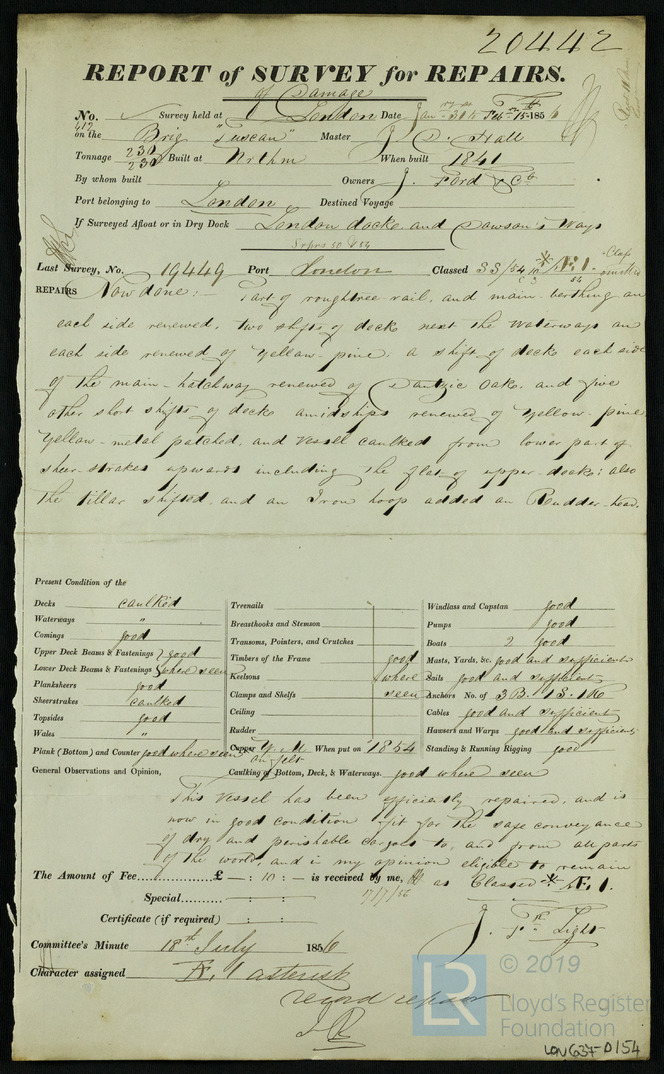 20442
REPORT of SURVEY for REPAIRS.
of Damage
No. 412 Survey held at London Date 1856
on the Brig "Tuscan" Master J. Hall
Tonnage 230 230 Built at When built 1841
By whom built Owners J. Ford & Co
Port belonging to London Destined Voyage
If Surveyed Afloat or in Dry Dock London docks and Dawson's Ways
Last Survey, No. 19449 Port London Classed 33/54 Æ 1.
REPAIRS Now done:- Part of roughtree-rail, and main-berthing on
each side renewed, two shifts of deck next the Waterways on
each side renewed of Yellow-pine, a shift of deck each side
of the main-hatchway renewed of Dantzic Oak, and five
other short shifts of deck amidships renewed of Yellow-pine
Yellow-metal patched, and Vessel caulked from lower part of
sheer-strakes upwards including the flat of upper-deck; also
the tillar shifted, and an Iron hoop added on Rudder-head.
Present Condition of the
Decks caulked
Waterways "
Comings good
Upper Deck Beams & Fastenings } good
Lower Deck Beams & Fastenings } where seen
Planksheers good
Sheerstrakes caulked
Topsides good
Wales "
Plank (Bottom) and Counter good where seen
Treenails
Breasthooks and Stemson
Transoms, Pointers, and Crutches
Timbers of the Frame good
Keelsons where
Clamps and Shelfs seen
Ceiling
Rudder
Copper Y. M. on felt When put on 1854
Caulking of Bottom, Deck, & Waterways. good where seen
Windlass and Capstan good
Pumps good
Boats 2 good
Masts, Yards, &c. good and sufficient
Sails good and sufficient
Anchors No. of 3 B. 1 S. 1 K
Cables good and sufficient
Hawsers and Warps good and sufficient
Standing & Running Rigging good
General Observations and Opinion,
This Vessel has been efficiently repaired, and is
now in good condition & fit for the safe conveyance
of dry and perishable cargoes to, and from all parts
of the world, and is my opinion eligible to remain
The Amount of Fee £ - : 10 : - is received by me, as Classed Æ 1.
17/7/56
Special : :
Certificate (if required) : :
J. Light
Committee's Minute 18th July 1856
Character assigned Æ. 1 asterisk
record repair
© 2019
LR Lloyd's Register
Foundation
LON637-0154